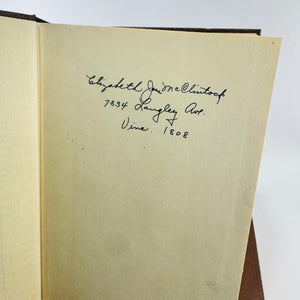 Elizabeth Jm McClintock
7334 Langley Ave.
Vine. 1808